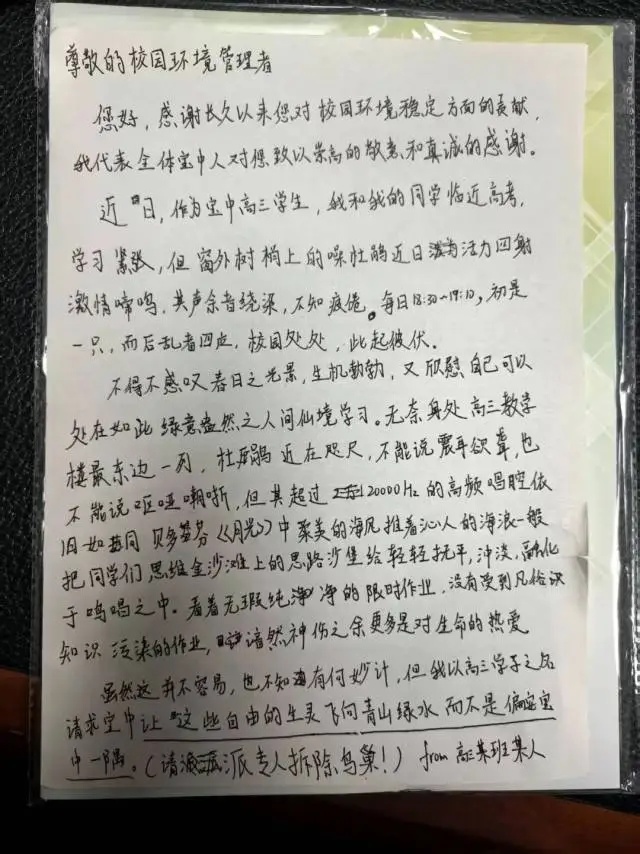 尊敬的校园环境管理者
您好，感谢长久以来您对校园环境稳定方面的贡献，
我代表全体宝中人对您致以崇高的敬意和真诚的感谢。
近日，作为宝中高三学生，我和我的同学临近高考，
学习紧张，但窗外树梢上的噪杜鹃近日活力四射
激情啼鸣，其声余音绕梁，不知疲倦。每日18:30~19:10，初是
一只，而后乱者四应，校园处处，此起彼伏。
不得不感叹春日之光景，生机勃勃，又欣慰自己可以
处在如此绿意盎然之人间仙境学习。无奈身处高三教学
楼最东边一列，杜鹃近在咫尺，不能说震耳欲聋，也
不能说呕哑嘲哳，但其超过20000Hz的高频唱腔依
旧如同贝多芬《月光》中聚美的海风推着沁人的海浪一般
把同学们思维金沙滩上的思路沙堡给轻轻抚平，冲淡，融化
于鸣唱之中。看着无瑕纯净的限时作业，没有受到凡俗识
知识污染的作业，谙然神伤之余更多是对生命的热爱
虽然这并不容易，也不知有何妙计，但我以高三学子之名
请求宝中让这些自由的生灵飞向青山绿水而不是偏宝宝
中一隅。（请派专人拆除鸟巢！）from高三某班某人